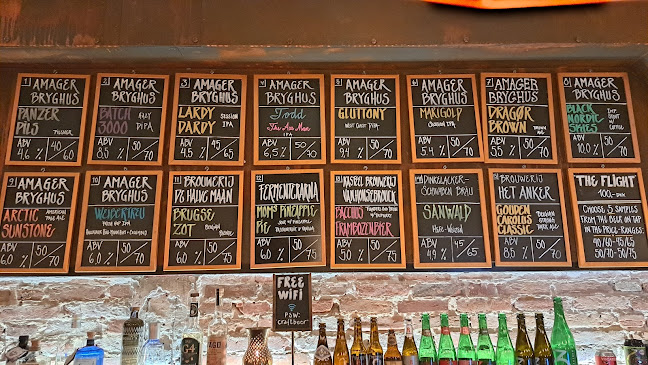 1 AMAGER BRYGHUS
PANZER PILS
PILSNER
ABV 4.6 % 40/60
2 AMAGER BRYGHUS
BATCH 3000
HAZY DIPA
ABV 8.5 % 50/70
3 AMAGER BRYGHUS
LARDY DARDY
SESSION IPA
ABV 4.5 % 45/65
4 AMAGER BRYGHUS
Todd
The Axe Man
IPA
ABV 6.5 % 50/70
5 AMAGER BRYGHUS
GLUTTONY
WEST COAST DIPA
ABV 9.4 % 50/70
6 AMAGER BRYGHUS
MARIGOLD
SESSION IPA
ABV 5.4 % 50/70
7 AMAGER BRYGHUS
DRAGØR BROWN
BROWN ALE
ABV 5.5 % 50/70
8 AMAGER BRYGHUS
BLACK NORDIC SKIES
ABV 10.0 % 50/70
9 AMAGER BRYGHUS
ARCTIC SUNSTONE
AMERICAN PALE ALE
ABV 6.0 % 50/70
10 AMAGER BRYGHUS
ABV 6.0 % 50/70
11 BROUWERIJ DE HALVE MAAN
BRUGSE ZOT
BELGIAN BLONDE
ABV 6.0 % 50/70
12 FERMENTERARNA
MOM'S PINEAPPLE PIE
ABV 6.0 % 50/70
13 KASTEEL BROUWERIJ VANHONSEBROUCK
BACCHUS FRAMBOZENBIER
ABV 5.0 % 50/70
14 DINKELACKER-SCHWABEN BRÄU
SANWALD
HEFE-WEIZEN
ABV 4.9 % 45/65
15 BROUWERIJ HET ANKER
GOUDEN CAROLUS CLASSIC
BELGIAN STRONG DARK ALE
ABV 8.5 % 50/70
THE FLIGHT
100,- DKK
CHOOSE 5 SAMPLES
FROM THE BEER ON TAP
IN THE PRICE-RANGES:
40/60 - 45/65
50/70 - 50/75
FREE WIFI
PSW:
craftbeer